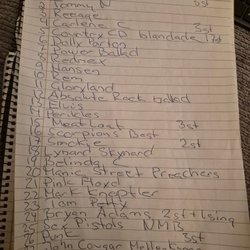 2 Tommy N 5st
3 Reegge
4 Carlene C 3st
5 Country CD Blandade 17st
6 Dolly Parton
7 Power Ballad
8 Rednex
9 Hansen
10 Rem
11 Gloryland
12 Absolute Rock ballad
13 Elvis
14 Herkles
15 Meat Loaf 3st
16 Scorpions Best
17 Smokie 2st
18 Lynard Skynard
19 Belinda
20 Manic Street Preachers
21 Pink Floyd
22 Mark Knopfler
23 Tom Petty
24 Bryan Adams 2st + 1sing
25 Sex Pistols NMB
26 3st
John Cougar Mellencamp